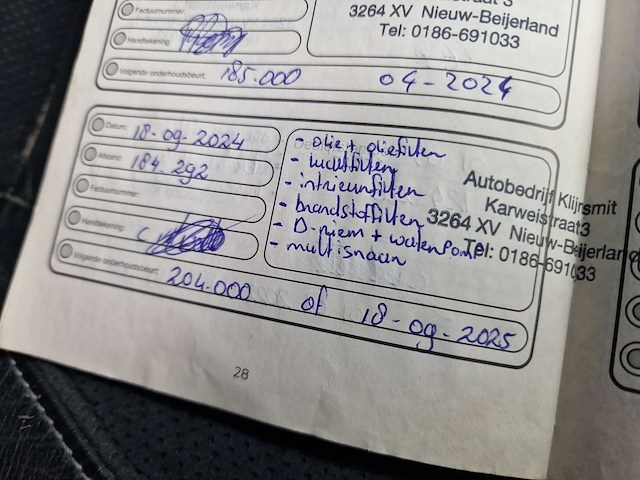 Factuurnummer:
3264 XV Nieuw-Beijerland
Tel: 0186-691033
Handtekening:
Volgende onderhoudsbeurt: 185.000 04-2024
Datum: 18-09-2024
Afstand: 184.292
Factuurnummer:
Handtekening:
- olie + oliefilter
- luchtfilter
- intrieurfilter
- brandstoffilter
- D-riem + waterpomp
- multisnaar
Autobedrijf Klijsmit
Karweistraat3
3264 XV Nieuw-Beijerland
Tel: 0186-691033
Volgende onderhoudsbeurt: 204.000 of 18-09-2025
28